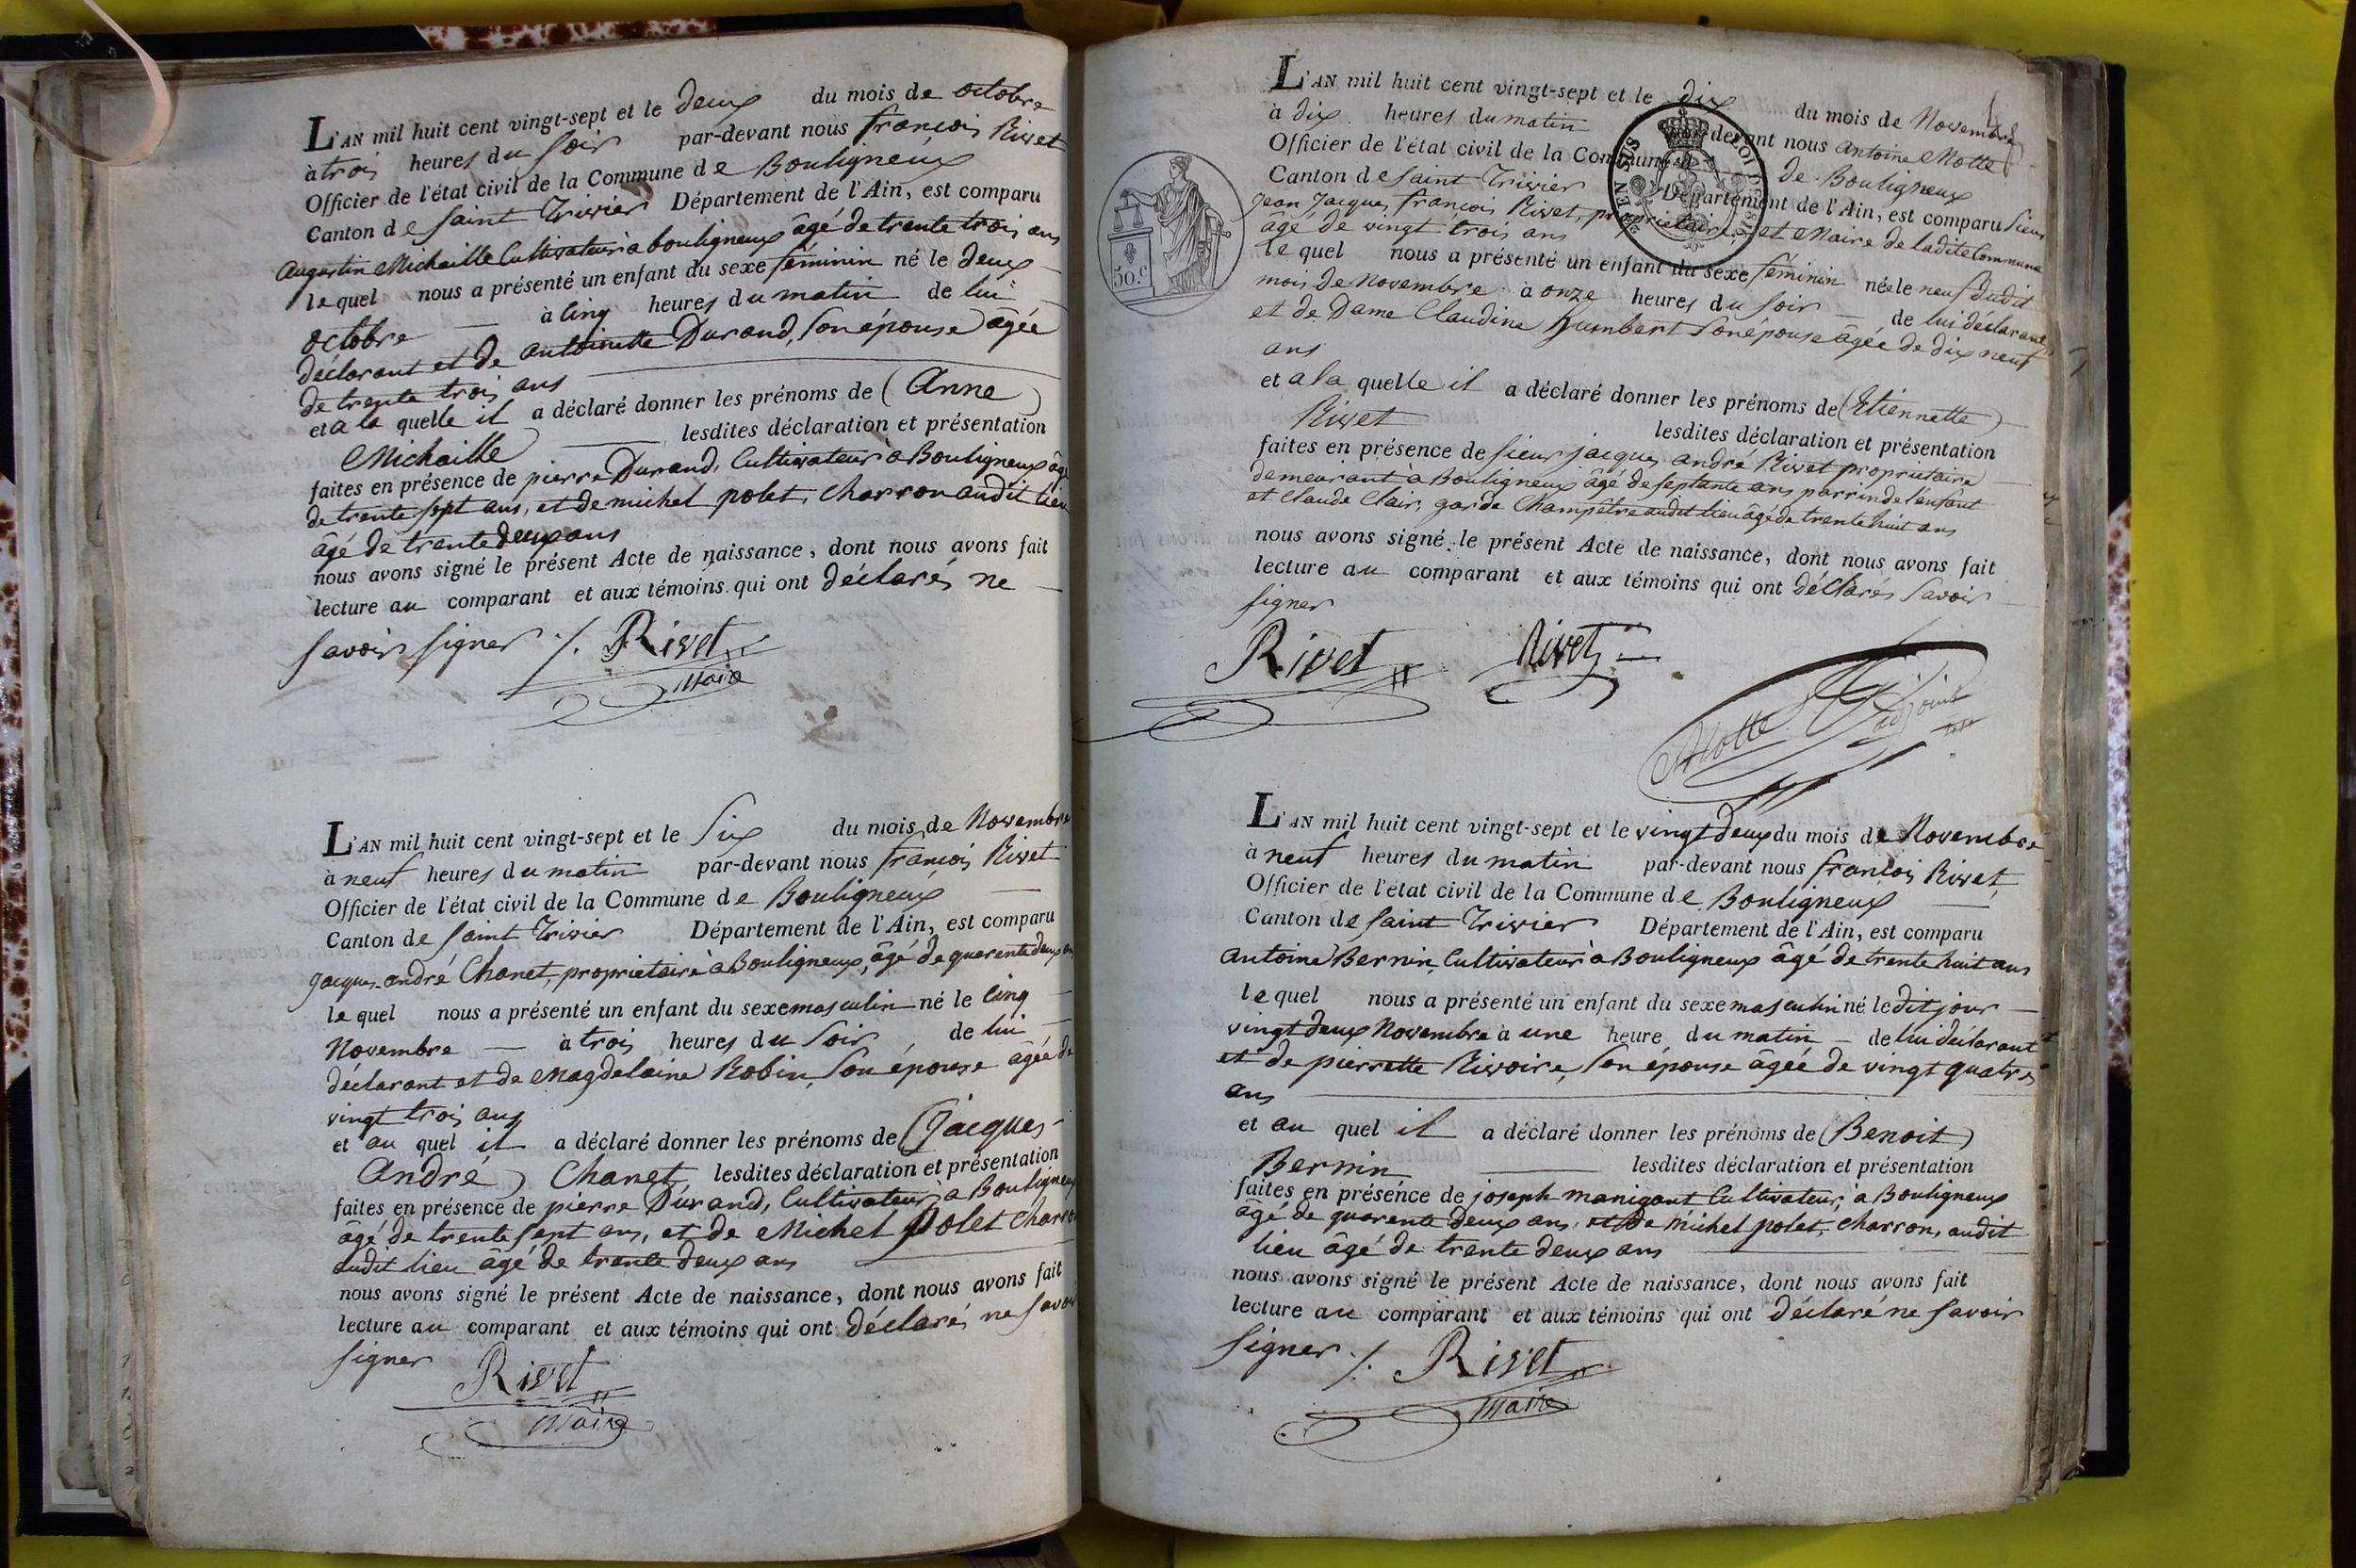 L'AN mil huit cent vingt-sept et le deux du mois de octobre
à trois heures du soir par-devant nous françois Rivet
Officier de l'état civil de la Commune de Bouligneux
Canton de saint Trivier Département de l'Ain, est comparu
augustin Michaille Cultivateur à bouligneux âgé de trente trois ans
lequel nous a présenté un enfant du sexe féminin né le deux
octobre à cinq heures du matin de lui
déclarant et de antoinette Durand, son épouse âgée
de trente trois ans
et a la quelle il a déclaré donner les prénoms de (Anne)
Michaille lesdites déclaration et présentation
faites en présence de pierre Durand, Cultivateur à Bouligneux âgé
de trente sept ans, et de michel polet, charron audit lieu
âgé de trente deux ans
nous avons signé le présent Acte de naissance, dont nous avons fait
lecture au comparant et aux témoins qui ont déclarés ne
savoir signer ./. Rivet
Maire
L'AN mil huit cent vingt-sept et le six du mois de Novembre
à neuf heures du matin par-devant nous françois Rivet
Officier de l'état civil de la Commune de Bouligneux
Canton de saint Trivier Département de l'Ain, est comparu
jacques andré Chanet, proprietaire à Bouligneux, âgé de quarente deux ans
lequel nous a présenté un enfant du sexe masculin né le cinq
Novembre à trois heures du soir de lui
déclarant et de Magdelaine Robin, son épouse âgée de
vingt trois ans
et au quel il a déclaré donner les prénoms de (jacques
andré) Chanet, lesdites déclaration et présentation
faites en présence de pierre Durand, Cultivateur, à Bouligneux
âgé de trente sept ans, et de Michel Polet charron
audit lieu âgé de trente deux ans
nous avons signé le présent Acte de naissance, dont nous avons fait
lecture au comparant et aux témoins qui ont déclarés ne savoir
signer Rivet
Maire
L'AN mil huit cent vingt-sept et le dix du mois de Novembre
à dix heures du matin devant nous antoine Motte
Officier de l'état civil de la Commune de Bouligneux
Canton de saint Trivier Département de l'Ain, est comparu sieur
jean jacques françois Rivet, proprietaire, et Maire de ladite Commune
âgé de vingt trois ans
le quel nous a présenté un enfant du sexe féminin née le neuf dudit
mois de Novembre à onze heures du soir de lui déclarant
et de Dame Claudine humbert son épouse âgée de dix neuf
ans
et a la quelle il a déclaré donner les prénoms de (Etiennette)
Rivet lesdites déclaration et présentation
faites en présence de sieur jacques andré Rivet proprietaire
demeurant à Bouligneux âgé de septante ans parrin de l'enfant
et Claude Clair, garde Champêtre audit lieu âgé de trente huit ans
nous avons signé le présent Acte de naissance, dont nous avons fait
lecture au comparant et aux témoins qui ont déclarés savoir
signer
Rivet Rivet
Motte adjoint
50.C
L'AN mil huit cent vingt-sept et le vingt deux du mois de Novembre
à neuf heures du matin par-devant nous françois Rivet
Officier de l'état civil de la Commune de Bouligneux
Canton de saint Trivier Département de l'Ain, est comparu
antoine Bernin, Cultivateur à Bouligneux âgé de trente huit ans
le quel nous a présenté un enfant du sexe masculin né le dit jour
vingt deux Novembre à une heure du matin de lui déclarant
et de pierrette Rivoire, son épouse âgée de vingt quatre
ans
et au quel il a déclaré donner les prénoms de (Benoit)
Bernin lesdites déclaration et présentation
faites en présence de joseph manigant Cultivateur, à Bouligneux
âgé de quarente deux ans, et de michel polet, charron, audit
lieu âgé de trente deux ans
nous avons signé le présent Acte de naissance, dont nous avons fait
lecture au comparant et aux témoins qui ont déclaré ne savoir
signer ./. Rivet
Maire